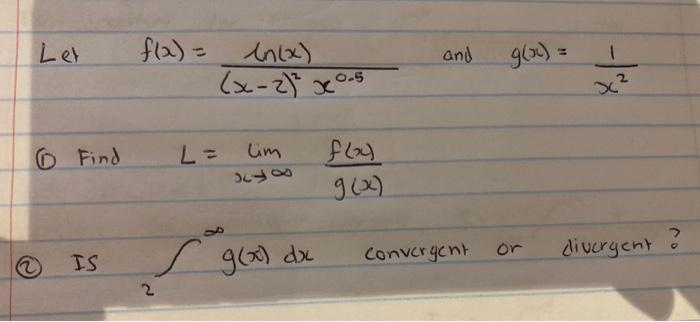 Let f(x) = ln(x) / (x-2)² x^0.5 and g(x) = 1 / x²
① Find L = lim x→∞ f(x) / g(x)
② Is ∫₂^∞ g(x) dx convergent or divergent?